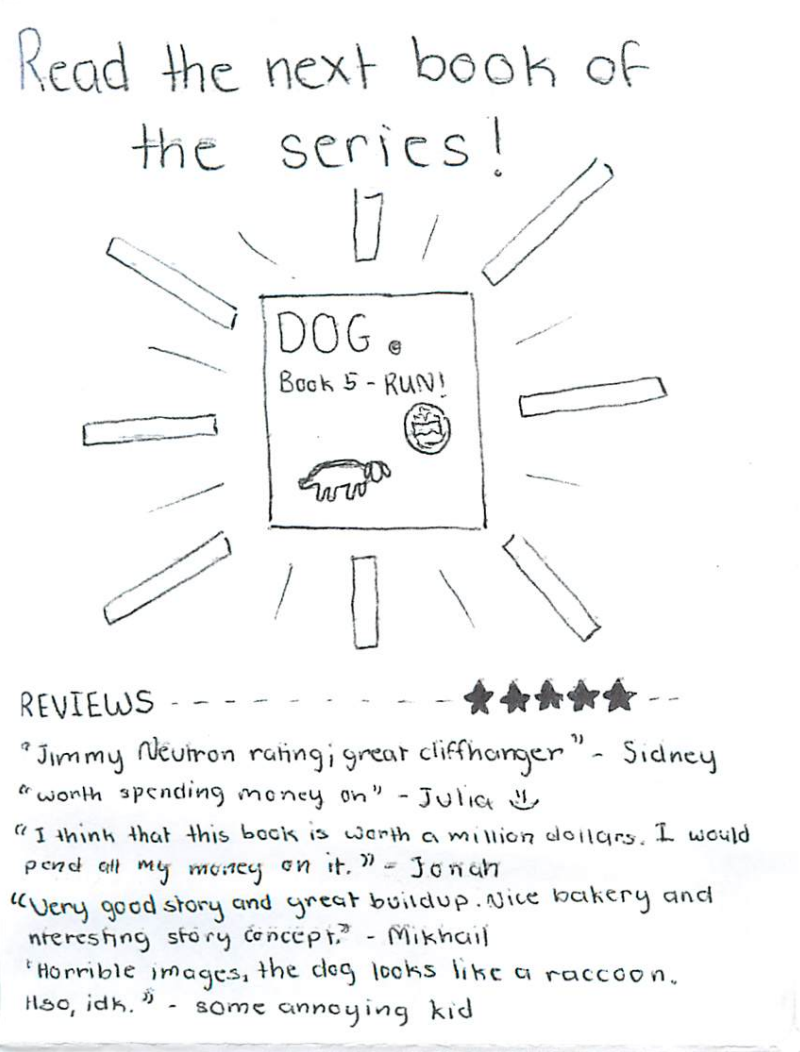 Read the next book of
the series!
DOG.
Book 5 - RUN!
REVIEWS - - - - - - - - - ★★★★★ - -
"Jimmy Neutron rating; great cliffhanger" - Sidney
"worth spending money on" - Julia
"I think that this book is worth a million dollars. I would
pend all my money on it." - Jonah
"Very good story and great buildup. Nice bakery and
nteresting story concept." - Mikhail
"Horrible images, the dog looks like a raccoon.
Also, idk." - some annoying kid